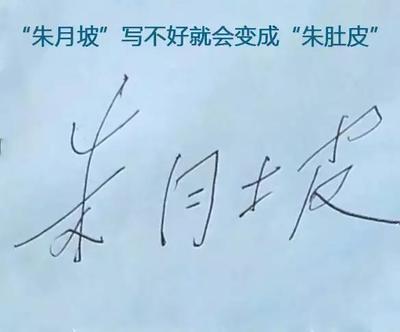 “朱月坡”写不好就会变成“朱肚皮”
朱月坡